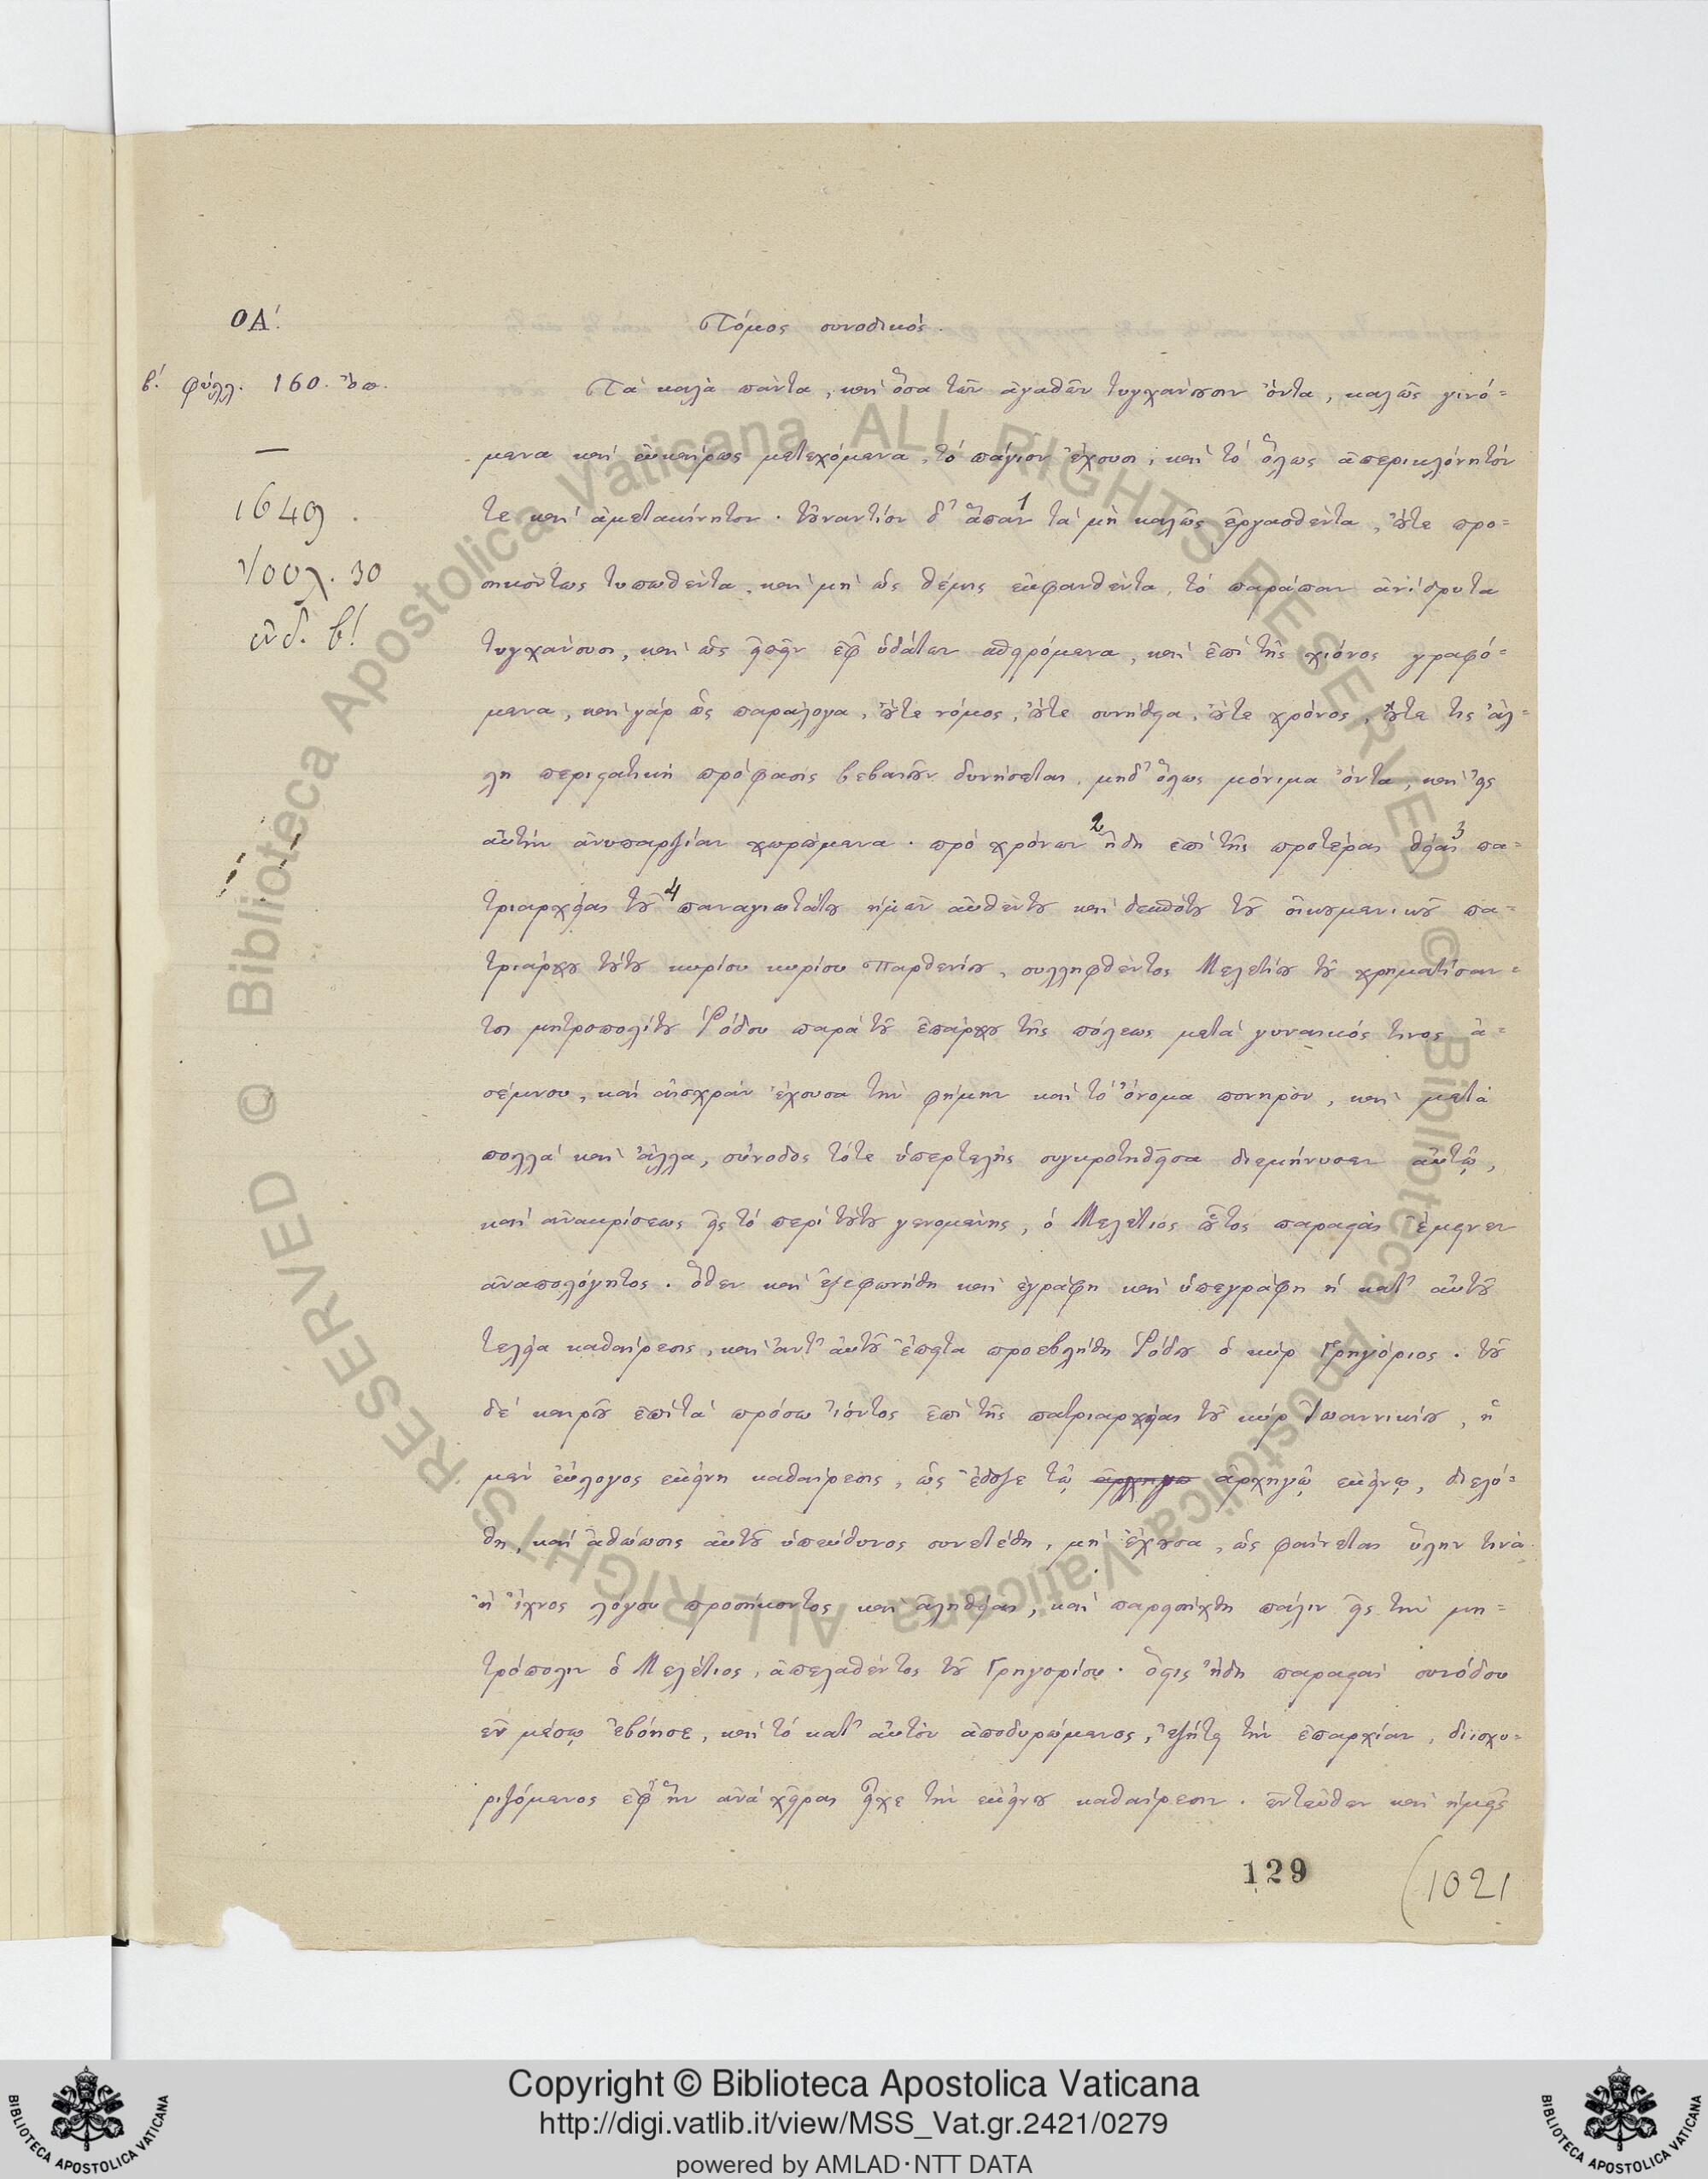 ΟΑ΄.
Τόμος συνοδικός.
β΄. φύλλ. 160. ὄπ.
1649.
Ἰουλ. 30
ἰνδ. β΄.
Τὰ καλὰ πάντα, καὶ ὅσα τῶν ἀγαθῶν τυγχάνουσιν ὄντα, καλῶς γινό=
μενα καὶ εὐκαίρως μετεχόμενα, τὸ πάγιον ἔχουσι, καὶ τὸ ὅλως ἀπερικλόνητόν
τε καὶ ἀμετακίνητον. τοὐναντίον δ' ἅπαν 1 τὰ μὴ καλῶς ἐργασθέντα, οὔτε προ=
σηκόντως τυπωθέντα, καὶ μὴ ὡς θέμις ἐκφανθέντα, τὸ παράπαν ἀνίδρυτα
τυγχάνουσι, καὶ ὡς εἰπεῖν ἐφ' ὑδάτων ἀθρόμενα, καὶ ἐπὶ τῆς χιόνος γραφό=
μενα, καὶ γὰρ ὡς παράλογα, οὔτε νόμος, οὔτε συνήθεια, οὔτε χρόνος, οὔτε τις ἄλ=
λη περιστατικὴ πρόφασις βεβαιοῦν δυνήσεται, μηδ' ὅλως μόνιμα ὄντα, καὶ εἰς
αὐτὴν ἀνυπαρξίαν χωρούμενα. πρὸ χρόνων 2 ἤδη ἐπὶ τῆς προτέρας θείας 3 πα=
τριαρχείας τοῦ 4 παναγιωτάτου ἡμῶν αὐθέντου καὶ δεσπότου τοῦ οἰκουμενικοῦ πα=
τριάρχου τούτου κυρίου κυρίου Παρθενίου, συλληφθέντος Μελετίου τοῦ χρηματίσαν=
τος μητροπολίτου Ῥόδου παρὰ τοῦ ἐπάρχου τῆς πόλεως μετὰ γυναικός τινος ἀ=
σέμνου, καὶ αἰσχρὰν ἔχουσα τὴν φήμην καὶ τὸ ὄνομα πονηρὸν, καὶ μετὰ
πολλὰ καὶ ἄλλα, σύνοδος τότε ὑπερτελὴς συγκροτηθεῖσα διεμήνυσεν αὐτῷ,
καὶ ἀνακρίσεως εἰς τὸ περὶ τούτου γενομένης, ὁ Μελέτιος οὗτος παραστὰς ἔμεινεν
ἀναπολόγητος. ὅθεν καὶ ἐξεφωνήθη καὶ ἐγράφη καὶ ὑπεγράφη ἡ κατ' αὐτοῦ
τελεία καθαίρεσις, καὶ ἀντ' αὐτοῦ ἔπειτα προεβλήθη Ῥόδου ὁ κὺρ Γρηγόριος. τοῦ
δὲ καιροῦ ἐπὶ τὰ πρόσω ἰόντος ἐπὶ τῆς πατριαρχείας τοῦ κὺρ Ἰωαννικίου, ἡ
μὲν εὔλογος ἐκείνη καθαίρεσις, ὡς ἔδοξε τῷ ἀρχηγῷ ἐκείνῳ, διελύ=
θη, καὶ ἀθώωσις αὐτοῦ ὑπεύθυνος συνετέθη, μὴ ἔχουσα, ὡς φαίνεται ὕλην τινὰ
ἢ ἴχνος λόγου προσήκοντος καὶ ἀληθείας, καὶ παρεισήχθη πάλιν εἰς τὴν μη=
τρόπολιν ὁ Μελέτιος, ἀπελαθέντος τοῦ Γρηγορίου. ὅστις ἤδη παραστὰς συνόδου
ἐν μέσῳ ἐβόησε, καὶ τὸ κατ' αὐτὸν ἀποδυρώμενος, ἐζήτει τὴν ἐπαρχίαν, διισχυ=
ριζόμενος ἐφ' ἣν ἀνὰ χεῖρας εἶχε τὴν ἐκείνου καθαίρεσιν. ἐντεῦθεν καὶ ἡμεῖς
129
(1021
Copyright © Biblioteca Apostolica Vaticana
http://digi.vatlib.it/view/MSS_Vat.gr.2421/0279
powered by AMLAD·NTT DATA